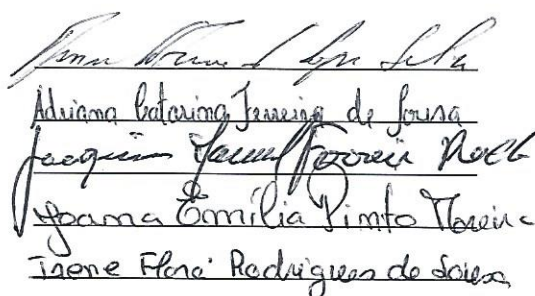 Lopes Silva
Adriana Catarina Ferreira de Sousa
Joaquim Manuel Ferreira
Joana Emília Pinto Moreira
Irene Flora Rodrigues de Sousa